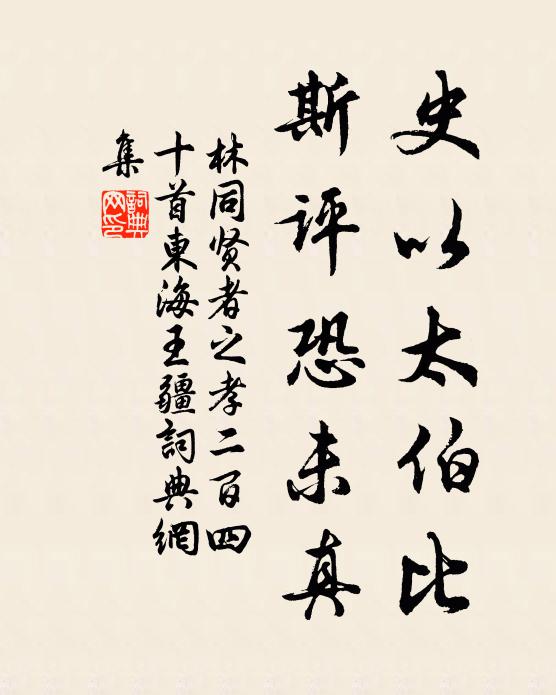 史以太伯比
斯评恐未真
林同贤者之孝二百四
十首東海王疆詞典網
集
詞典網印